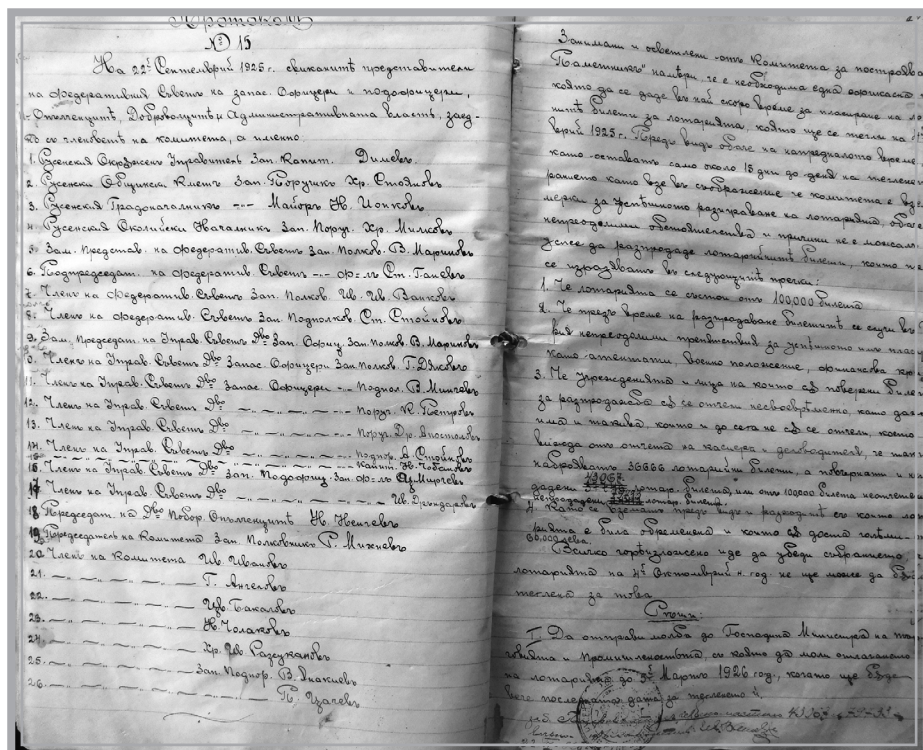 Протоколъ
№ 15
На 22й Септемврий 1925 г. свиканитѣ представители
на Федеративния Съветъ на запас. Офицери и подофицери,
Опълченцитѣ, Доброволцитѣ и Административната власть, заед-
но съ членоветѣ на комитета, а именно:
1. Русенския Окрѫженъ Управитель Зап. Капит. Димевъ.
2. Русенски Общински Кметъ Зап. Поручикъ Хр. Стояновъ
3. Русенския Градоначалникъ -〃- Майоръ Н. Йонковъ
4. Русенския Околийски Началникъ Зап. Поруч. Хр. Милковъ
5. Зам. Представ. на Федератив. Съветъ Зап. Полков. В. Мариновъ
6. Подпредседат. на Федератив. Съветъ -〃- Ф-лъ Ст. Ганевъ
7. Членъ на Федератив. Съветъ Зап. Полков. Ив. Ив. Ванковъ
8. Членъ на Федератив. Съветъ Зап. Подполков. Ст. Стойновъ
9. Зам. Председат. на Управ. Съветъ Д-во Зап. Офиц. Зап. полков. В. Мариновъ
10. Членъ на Управ. Съветъ Д-во Запас. Офицери Зап. Полков. Г. Дяковъ
11. Членъ на Управ. Съветъ Д-во Запас. Офицери -〃- Подпол. В. Минчевъ
12. Членъ на Управ. Съветъ Д-во -〃- -〃- Поруч. К. Петровъ
13. Членъ на Управ. Съветъ Д-во -〃- -〃- Поруч. Др. Апостоловъ
14. Членъ на Управ. Съветъ Д-во -〃- -〃- Подпор. А. Стойковъ
15. -〃- -〃- Капит. Н. Чобановъ
16. Членъ на Управ. Съветъ Д-во Зап. Подофиц. Зап. Ф-лъ
17. Членъ на Управ. Съветъ Д-во -〃- -〃- Цв.
18. Председат. на Д-во Побор. Опълченцитѣ Н. Ненчевъ
19. Председатель на Комитета Зап. Полковникъ Р. Михневъ
20. Членъ на Комитета Ив. Ивановъ
21. -〃- -〃- Г. Ангеловъ
22. -〃- -〃- Цв. Бакаловъ
23. -〃- -〃- Н. Чолаковъ
24. -〃- -〃- Хр. Ив. Разсукановъ
25. -〃- -〃- Зап. Подпор. В. Янакиевъ
26. -〃- -〃- П. Цачевъ
Занимани и осветлени отъ Комитета за построява
Паметникъ" намѣри, че е необходима една
която да се даде въ най скоро време за пласиране на ло
нитѣ билети за лотарията, която ще се тегли на
врий 1925 г. Предъ видъ обаче на напредналото време
като остават само около 15 дни до деня на теглене
ранието като взе въ съображение че комитета е взе
мерки за успѣшното разиграване на лотарията, обаче
непреодолими обстоятелства и причини не е можал
успее да разпродаде лотарийнитѣ билети, които
се изразяватъ въ следующитѣ пречки:
1. Че лотарията се състои отъ 100,000 билета
2. Че презъ време на разпродаване билетитѣ се случи
рия непреодолими препятствия за успѣшното имъ плас
като атентати, военно положение,
3. Че Учрежденията и лица на които сѫ поверени биле
за разпродажба сѫ се отчели несвоевременно, като даже
има и такива, които и до сега не сѫ се отчели, което
вижда отъ отчета на касиера и деловодителя, че так
наброяватъ 36666 лотарийни билети, а повърнати
43067
дадени лотар. билета, или отъ 100,000 билета неотчетени
непродадени лотар. билети.
4. Като се вземат предъ видъ и разходитѣ съ които
рията е била обременена и които сѫ доста големи
60.000 лева.
Всичко горе изложено иде да убеди събранието
лотарията на 4й Октомврий н. год. не ще може да бѫ
теглена за това
Рѣши:
I. Да отправи молба до Господина Министра на тър
говията и Промишлеността, съ която да моли отлагането
на лотарията до Мартъ 1926 год., когато ще бѫде
вече последната дата за тегленето ѝ.